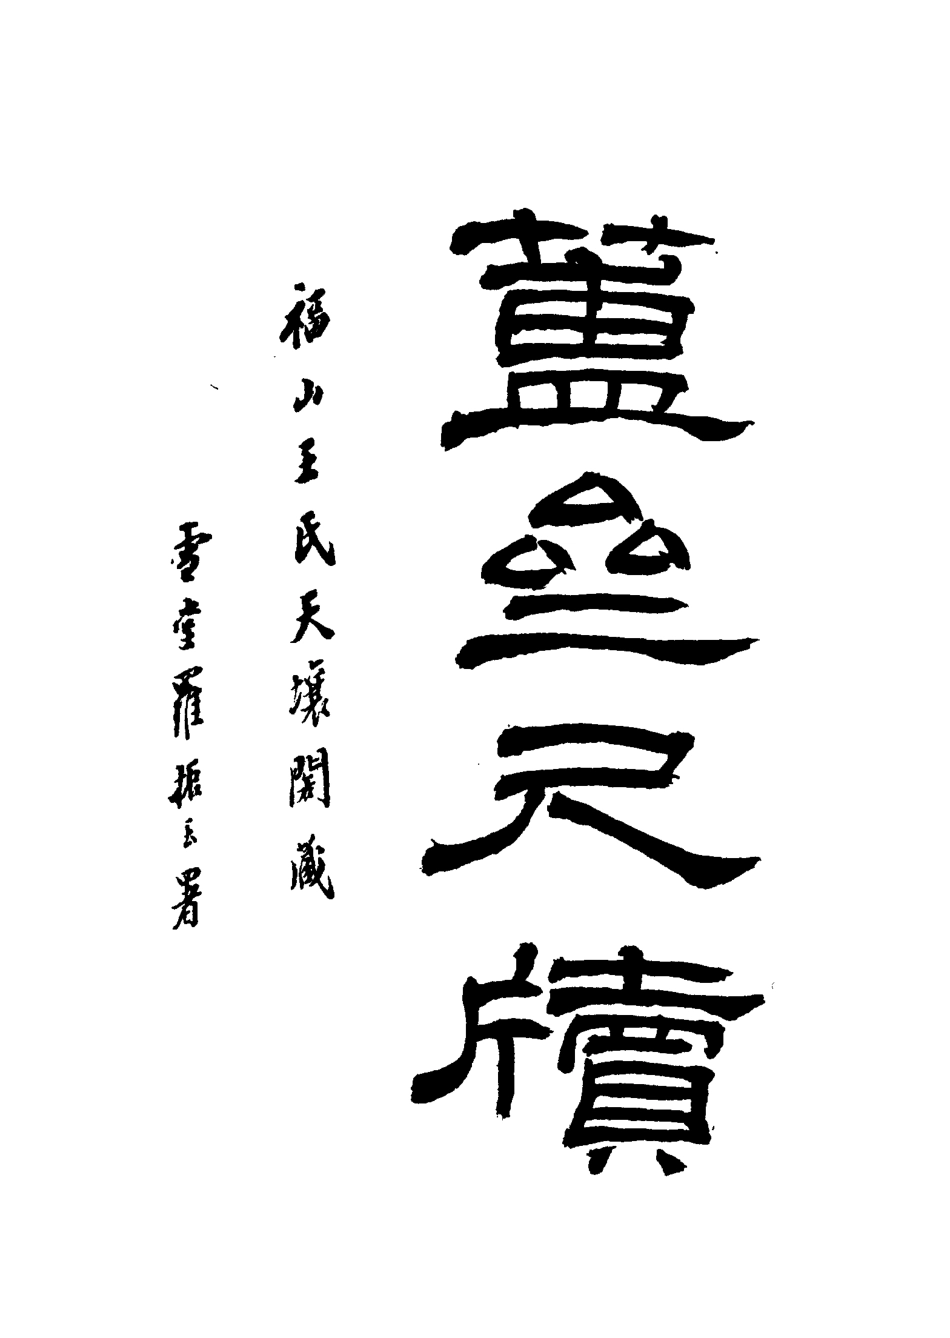 簠亝尺牘
福山王氏天壤閣藏
雪堂羅振玉署